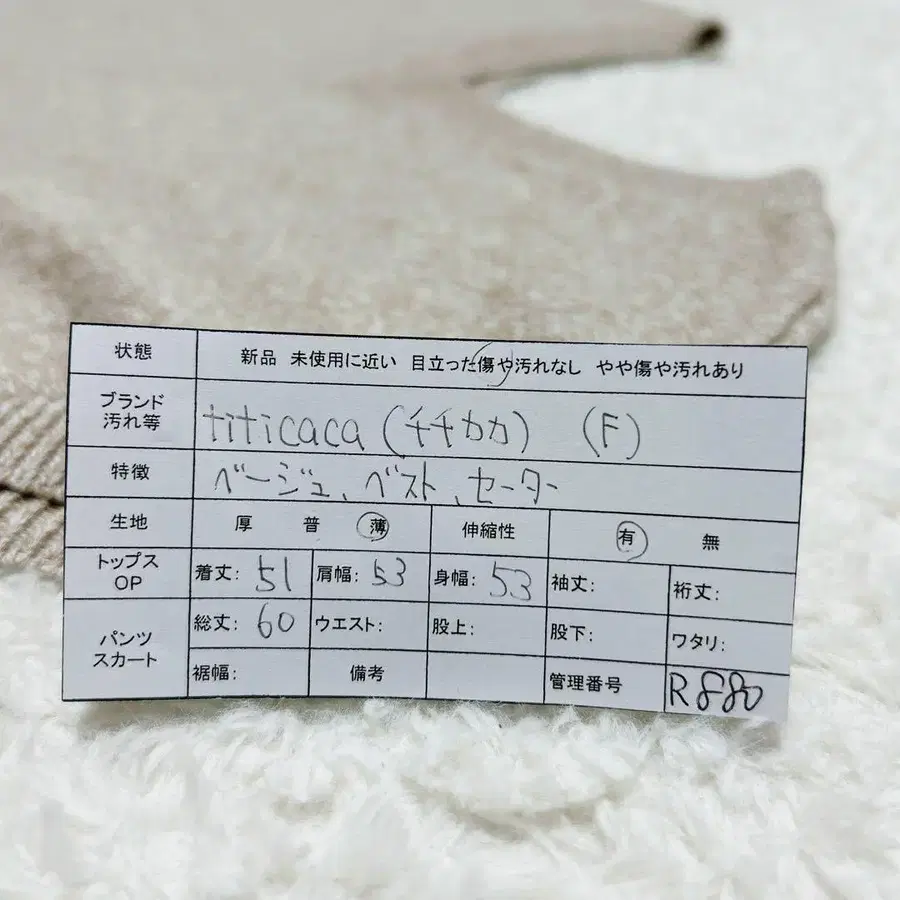 状態 新品 未使用に近い 目立った傷や汚れなし やや傷や汚れあり
ブランド
汚れ等 titicaca (チチカカ) (F)
特徴 ベージュ、ベスト、セーター
生地 厚 普 薄 伸縮性 有 無
トップス
OP 着丈: 51 肩幅: 53 身幅: 53 袖丈: 裄丈:
パンツ
スカート 総丈: 60 ウエスト: 股上: 股下: ワタリ:
裾幅: 備考 管理番号 R880